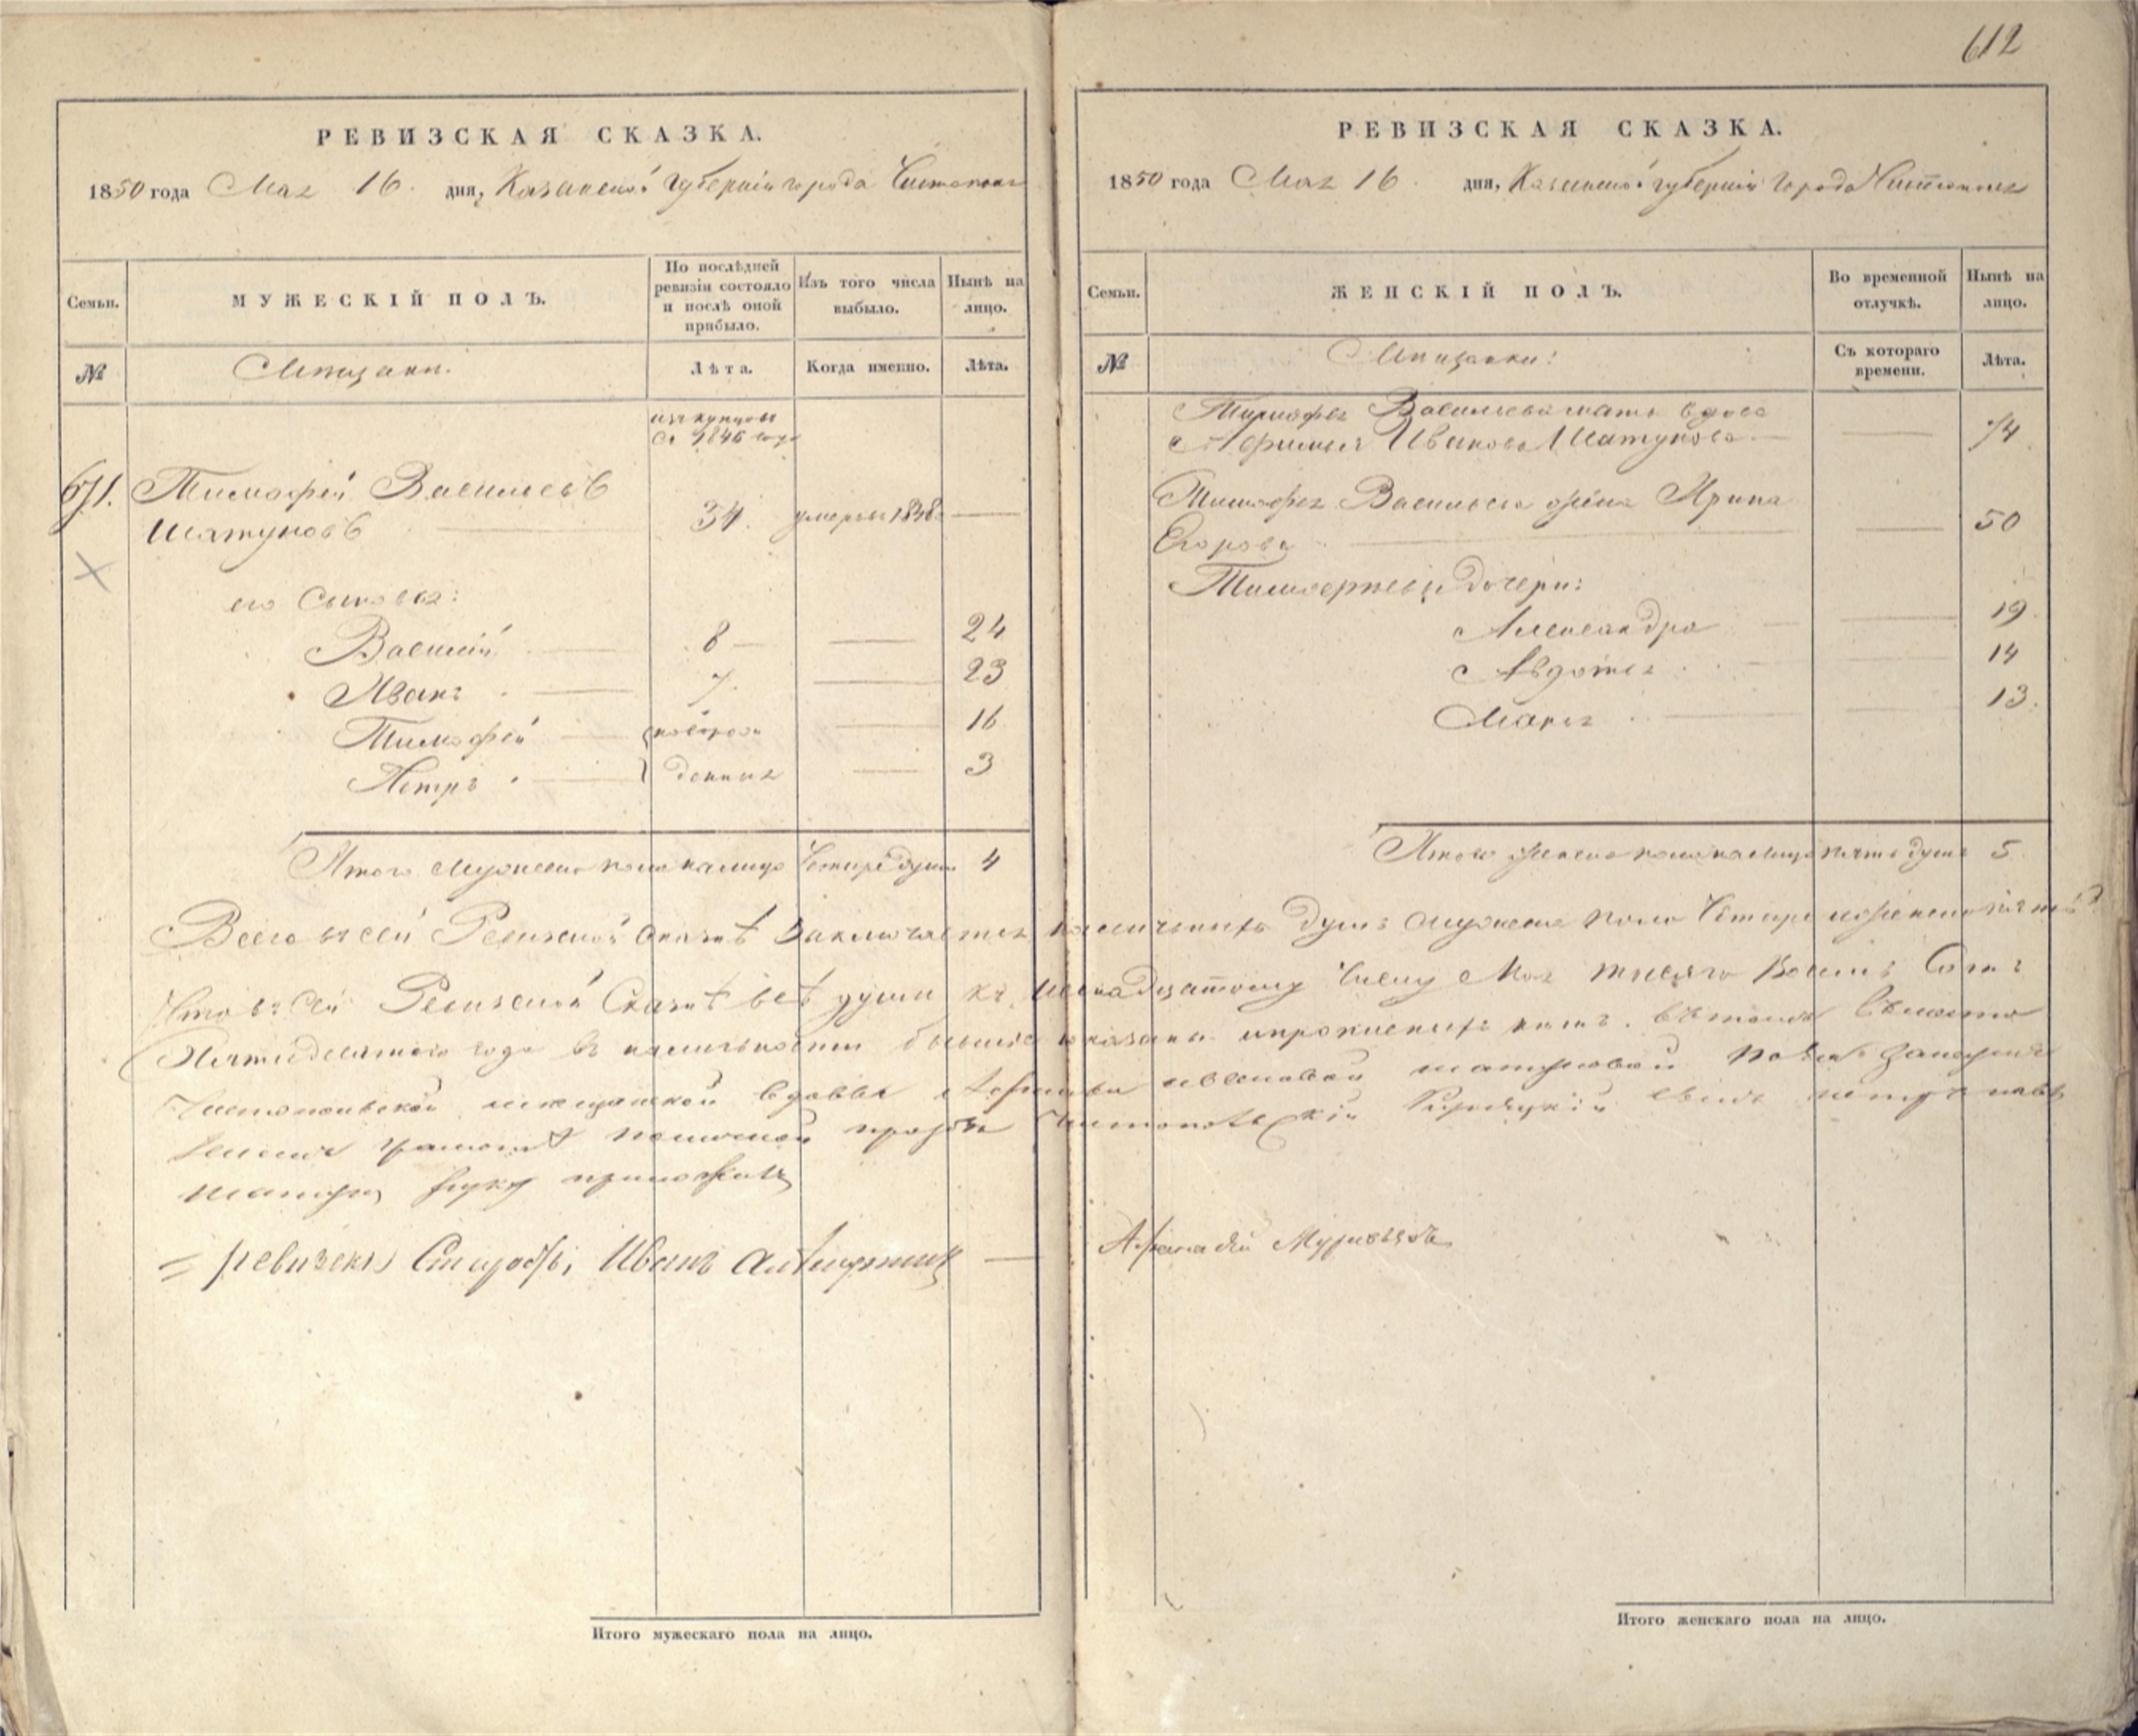 612
РЕВИЗСКАЯ СКАЗКА.
1850 года Мая 16. дня, Казанской Губернии города Чистополя
Семьи.
МУЖЕСКІЙ ПОЛЪ.
По послѣдней ревизіи состояло и послѣ оной прибыло.
Изъ того числа выбыло.
Нынѣ на лицо.
№
Мѣщане.
Лѣта.
Когда именно.
Лѣта.
изъ купцовъ
съ 1846 года
671. Тимофей Васильевъ
Шатуновъ 34. умеръ въ 1848
его сыновья:
Василій 8 24
Иванъ 7. 23
Тимофей новорож 16
Петръ денныя 3
Итого мужеска пола налицо четыре души 4
РЕВИЗСКАЯ СКАЗКА.
1850 года Мая 16. дня, Казанской губерніи города Чистополя
Семьи.
ЖЕНСКІЙ ПОЛЪ.
Во временной отлучкѣ.
Нынѣ на лицо.
№
Мѣщанки:
Съ котораго времени.
Лѣта.
Тимофея Васильева мать вдова
Афимья Иванова Шатунова 74
Тимофея Васильева жена Ирина
Егорова 50
Тимофеевы дочери:
Александра 19.
Авдотья 14
Марья 13.
Итого женска пола налицо пять душъ 5
Всего въ сей Ревизской сказкѣ заключается наличныхъ душъ мужеска пола четыре женска пять
Что въ сей Ревизской Сказкѣ всѣ души къ шеснадцатому числу Мая тысяча восемь сотъ
Пятидесятаго года въ наличности бывшіе показаны и прописныхъ нѣтъ. въ томъ вмѣсто
Чистопольской мѣщанской вдовы Афимьи Ивановой Шатуновой
руку приложилъ
Староста Иванъ
Итого мужескаго пола на лицо.
Итого женскаго пола на лицо.